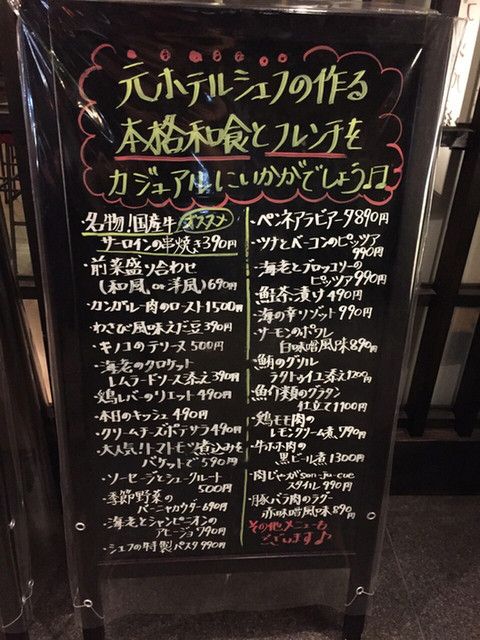 元ホテルシェフの作る
本格和食とフレンチを
カジュアルにいかがでしょう♫
・名物!国産牛 オススメ
サーロインの串焼き390円
・前菜盛り合わせ
(和風or洋風)690円
・カンガルー肉のロースト1500円
・わさび風味えだ豆390円
・キノコのテリーヌ500円
・海老のクロケット
レムラードソース添え390円
・鶏レバーのリエット490円
・本日のキッシュ490円
・クリームチーズポテサラ490円
・大人気!トマトモツ煮込みを
バケットで590円
・ソーセージとシュークルート
500円
・季節野菜の
バーニャカウダー690円
・海老とシャンピニオンの
アヒージョ790円
・シェフの特製パスタ990円
・ペンネアラビアータ890円
・ツナとベーコンのピッツァ
990円
・海老とブロッコリーの
ピッツァ990円
・鮭茶漬け490円
・海の幸リゾット990円
・サーモンのポワレ
白味噌風味890円
・鮪のグリル
ラタトゥイユ添え1200円
・魚介類のグラタン
仕立て1100円
・鶏モモ肉の
レモンクリーム煮790円
・牛ホホ肉の
黒ビール煮1300円
・肉じゃがsan-ju-cue
スタイル990円
・豚バラ肉のラグー
赤味噌風味890円
その他メニューも
ございます♪